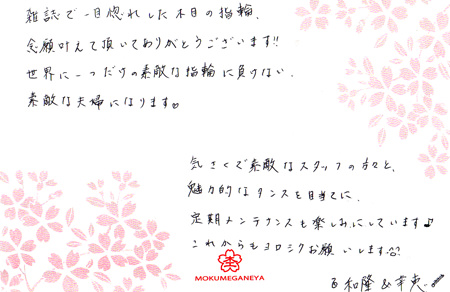 雑誌で一目惚れした木目の指輪、
念願叶えて頂いてありがとうございます!!
世界に一つだけの素敵な指輪に負けない、
素敵な夫婦になります♡
気さくで素敵なスタッフの方々と、
魅力的なタンスを目当てに、
定期メンテナンスも楽しみにしています♪
これからもヨロシクお願いします
和隆&
MOKUMEGANEYA